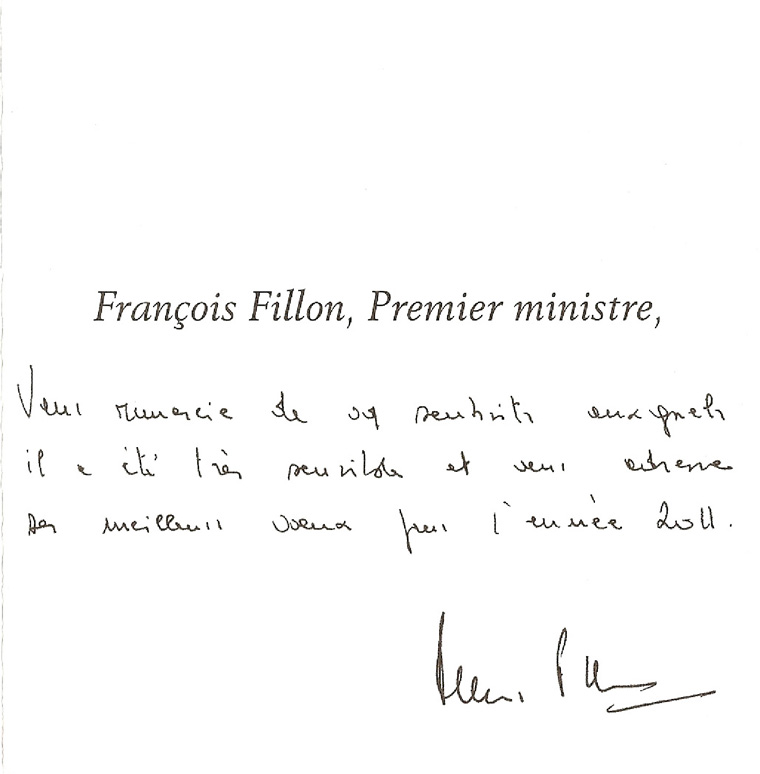 François Fillon, Premier ministre,
Vous remercie de vos souhaits auxquels
il a été très sensible et vous adresse
ses meilleurs voeux pour l'année 2011.
François Fillon